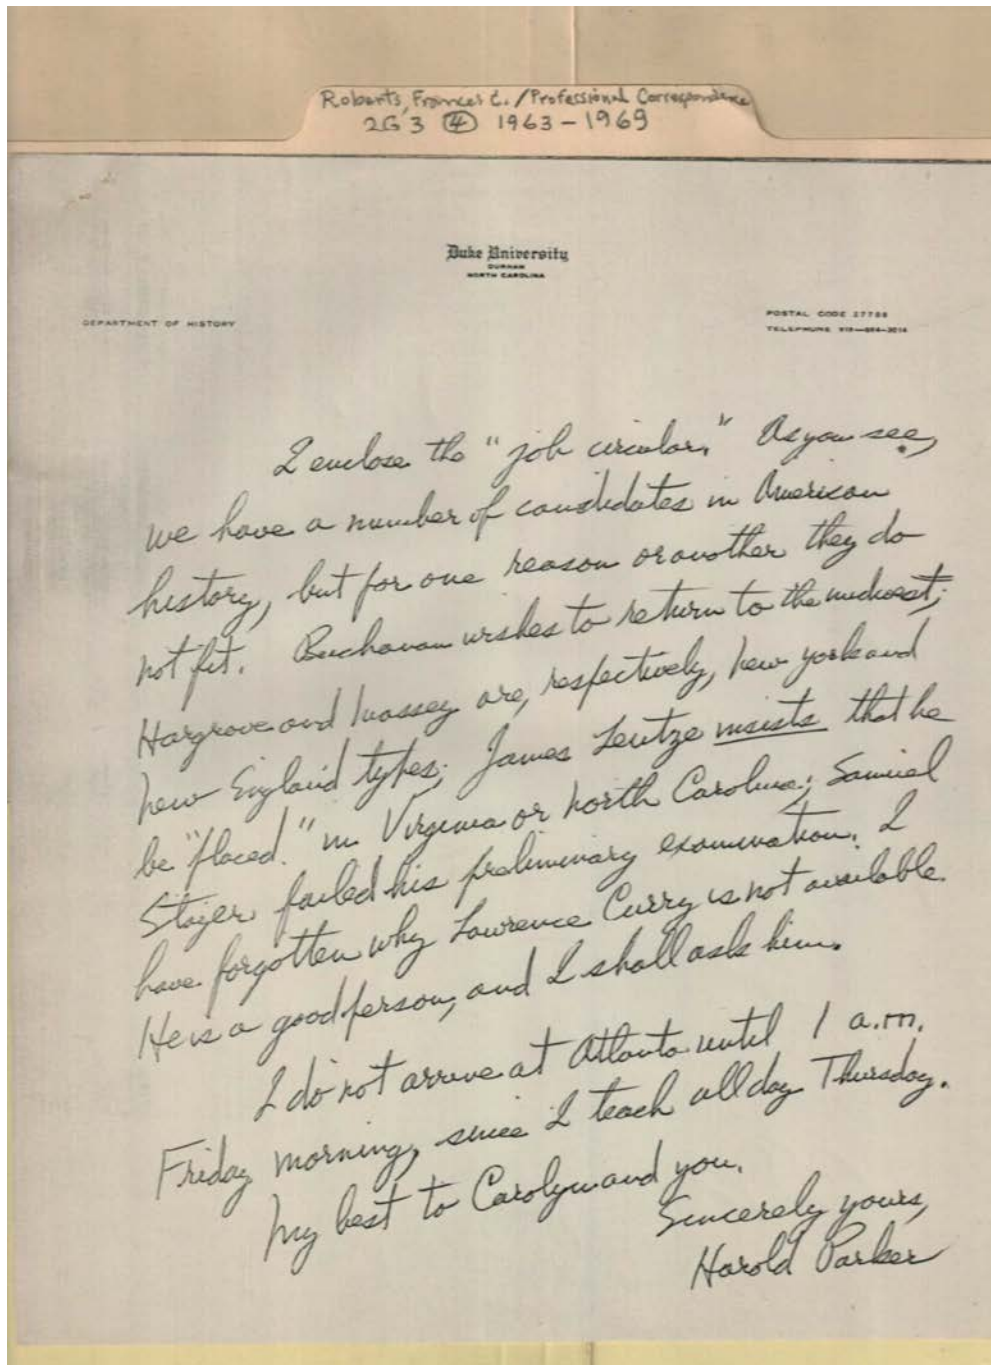 Roberts, Frances C. / Professional Correspondence
2G3 ④ 1963-1969
Duke University
DURHAM
NORTH CAROLINA
DEPARTMENT OF HISTORY
POSTAL CODE 27706
TELEPHONE 919—684—3014
I enclose the "job circular." As you see,
we have a number of candidates in American
history, but for one reason or another they do
not fit. Buchanan wishes to return to the midwest;
Hargrove and Massey are, respectively, New York and
New England types; James Leutze insists that he
be "placed" in Virginia or North Carolina; Samuel
Stayer failed his preliminary examination. I
have forgotten why Lawrence Curry is not available.
He is a good person, and I shall ask him.
I do not arrive at Atlanta until 1 a.m.
Friday morning, since I teach all day Thursday.
My best to Carolyn and you.
Sincerely yours,
Harold Parker